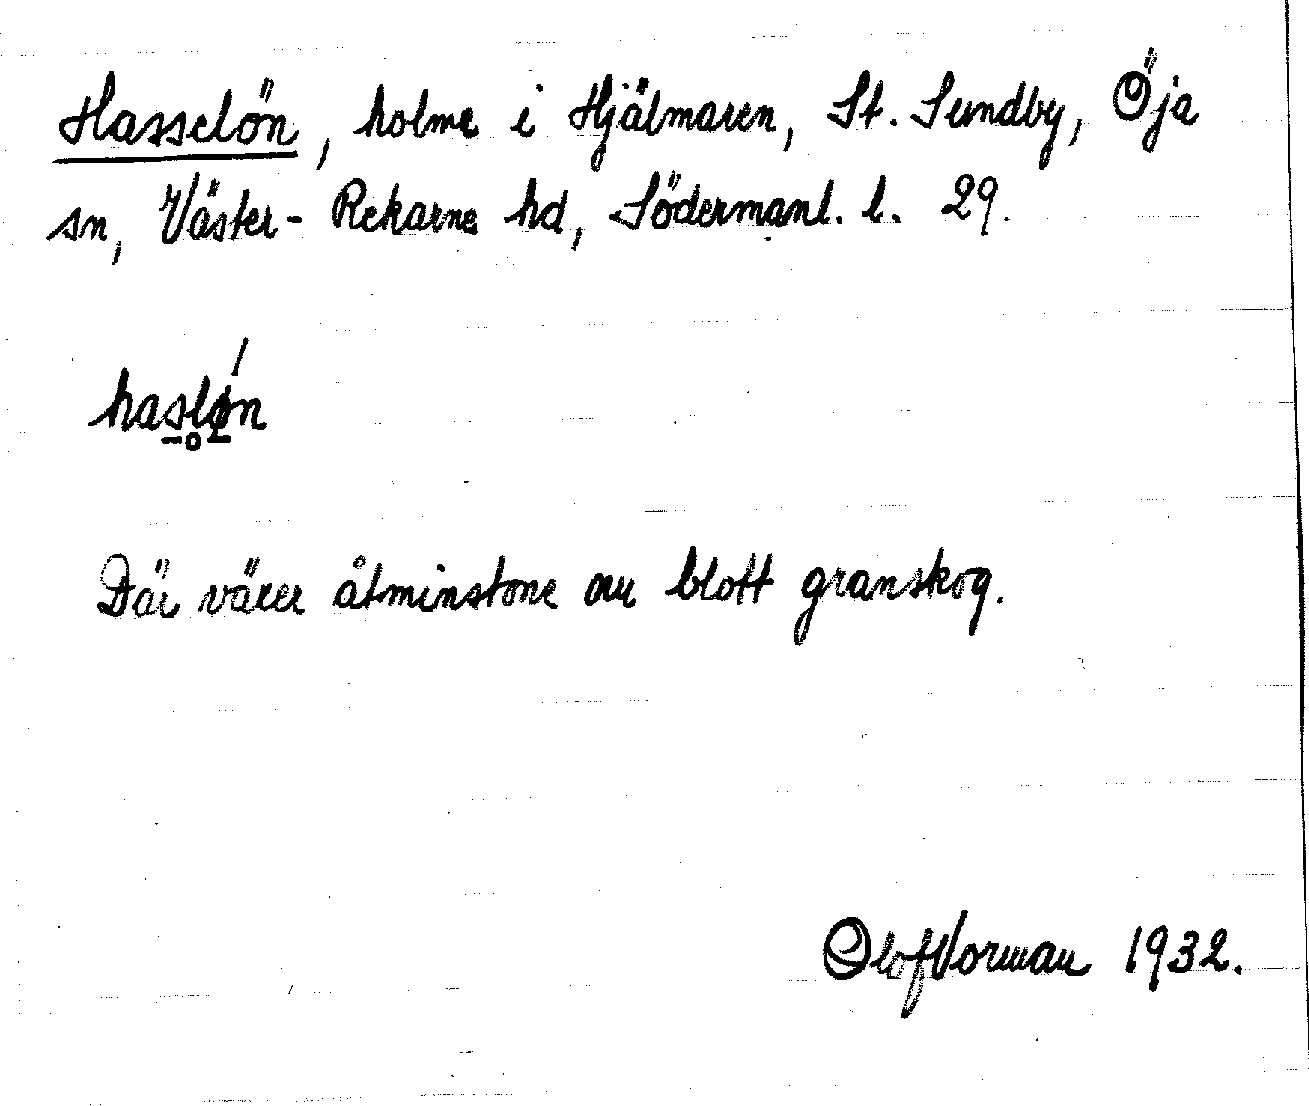 Hasselön, holme i Hjälmaren, St. Sundby, Öja
sn, Väster-Rekarne hd, Södermanl. l. 29.
haslø̀n
Där växer åtminstone nu blott granskog.
Olof Vorman 1932.